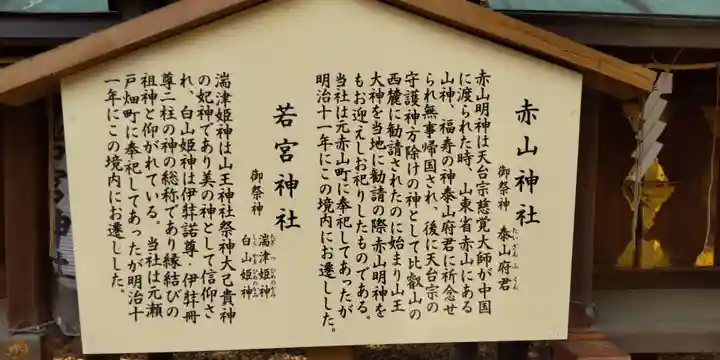 赤山神社
御祭神 泰山府君
たいざんふくん
赤山明神は天台宗慈覚大師が中国
に渡られた時、山東省赤山にある
山神、福寿の神泰山府君に祈念せ
られ無事帰国され、後に天台宗の
守護神方除けの神として比叡山の
西麓に勧請されたのに始まり山王
大神を当地に勧請の際赤山明神を
もお迎えしお祀りしたものである。
当社は元赤山町に奉祀してあったが
明治十一年にこの境内にお遷しした。
若宮神社
御祭神
湍津姫神
たぎつひめのかみ
白山姫神
しらやまひめのかみ
湍津姫神は山王神社祭神大己貴神
の妃神であり美の神として信仰さ
れ、白山姫神は伊弉諾尊・伊弉冊
尊二柱の神の総称であり縁結びの
祖神と仰がれている。当社は元瀬
戸畑町に奉祀してあったが明治十
一年にこの境内にお遷しした。